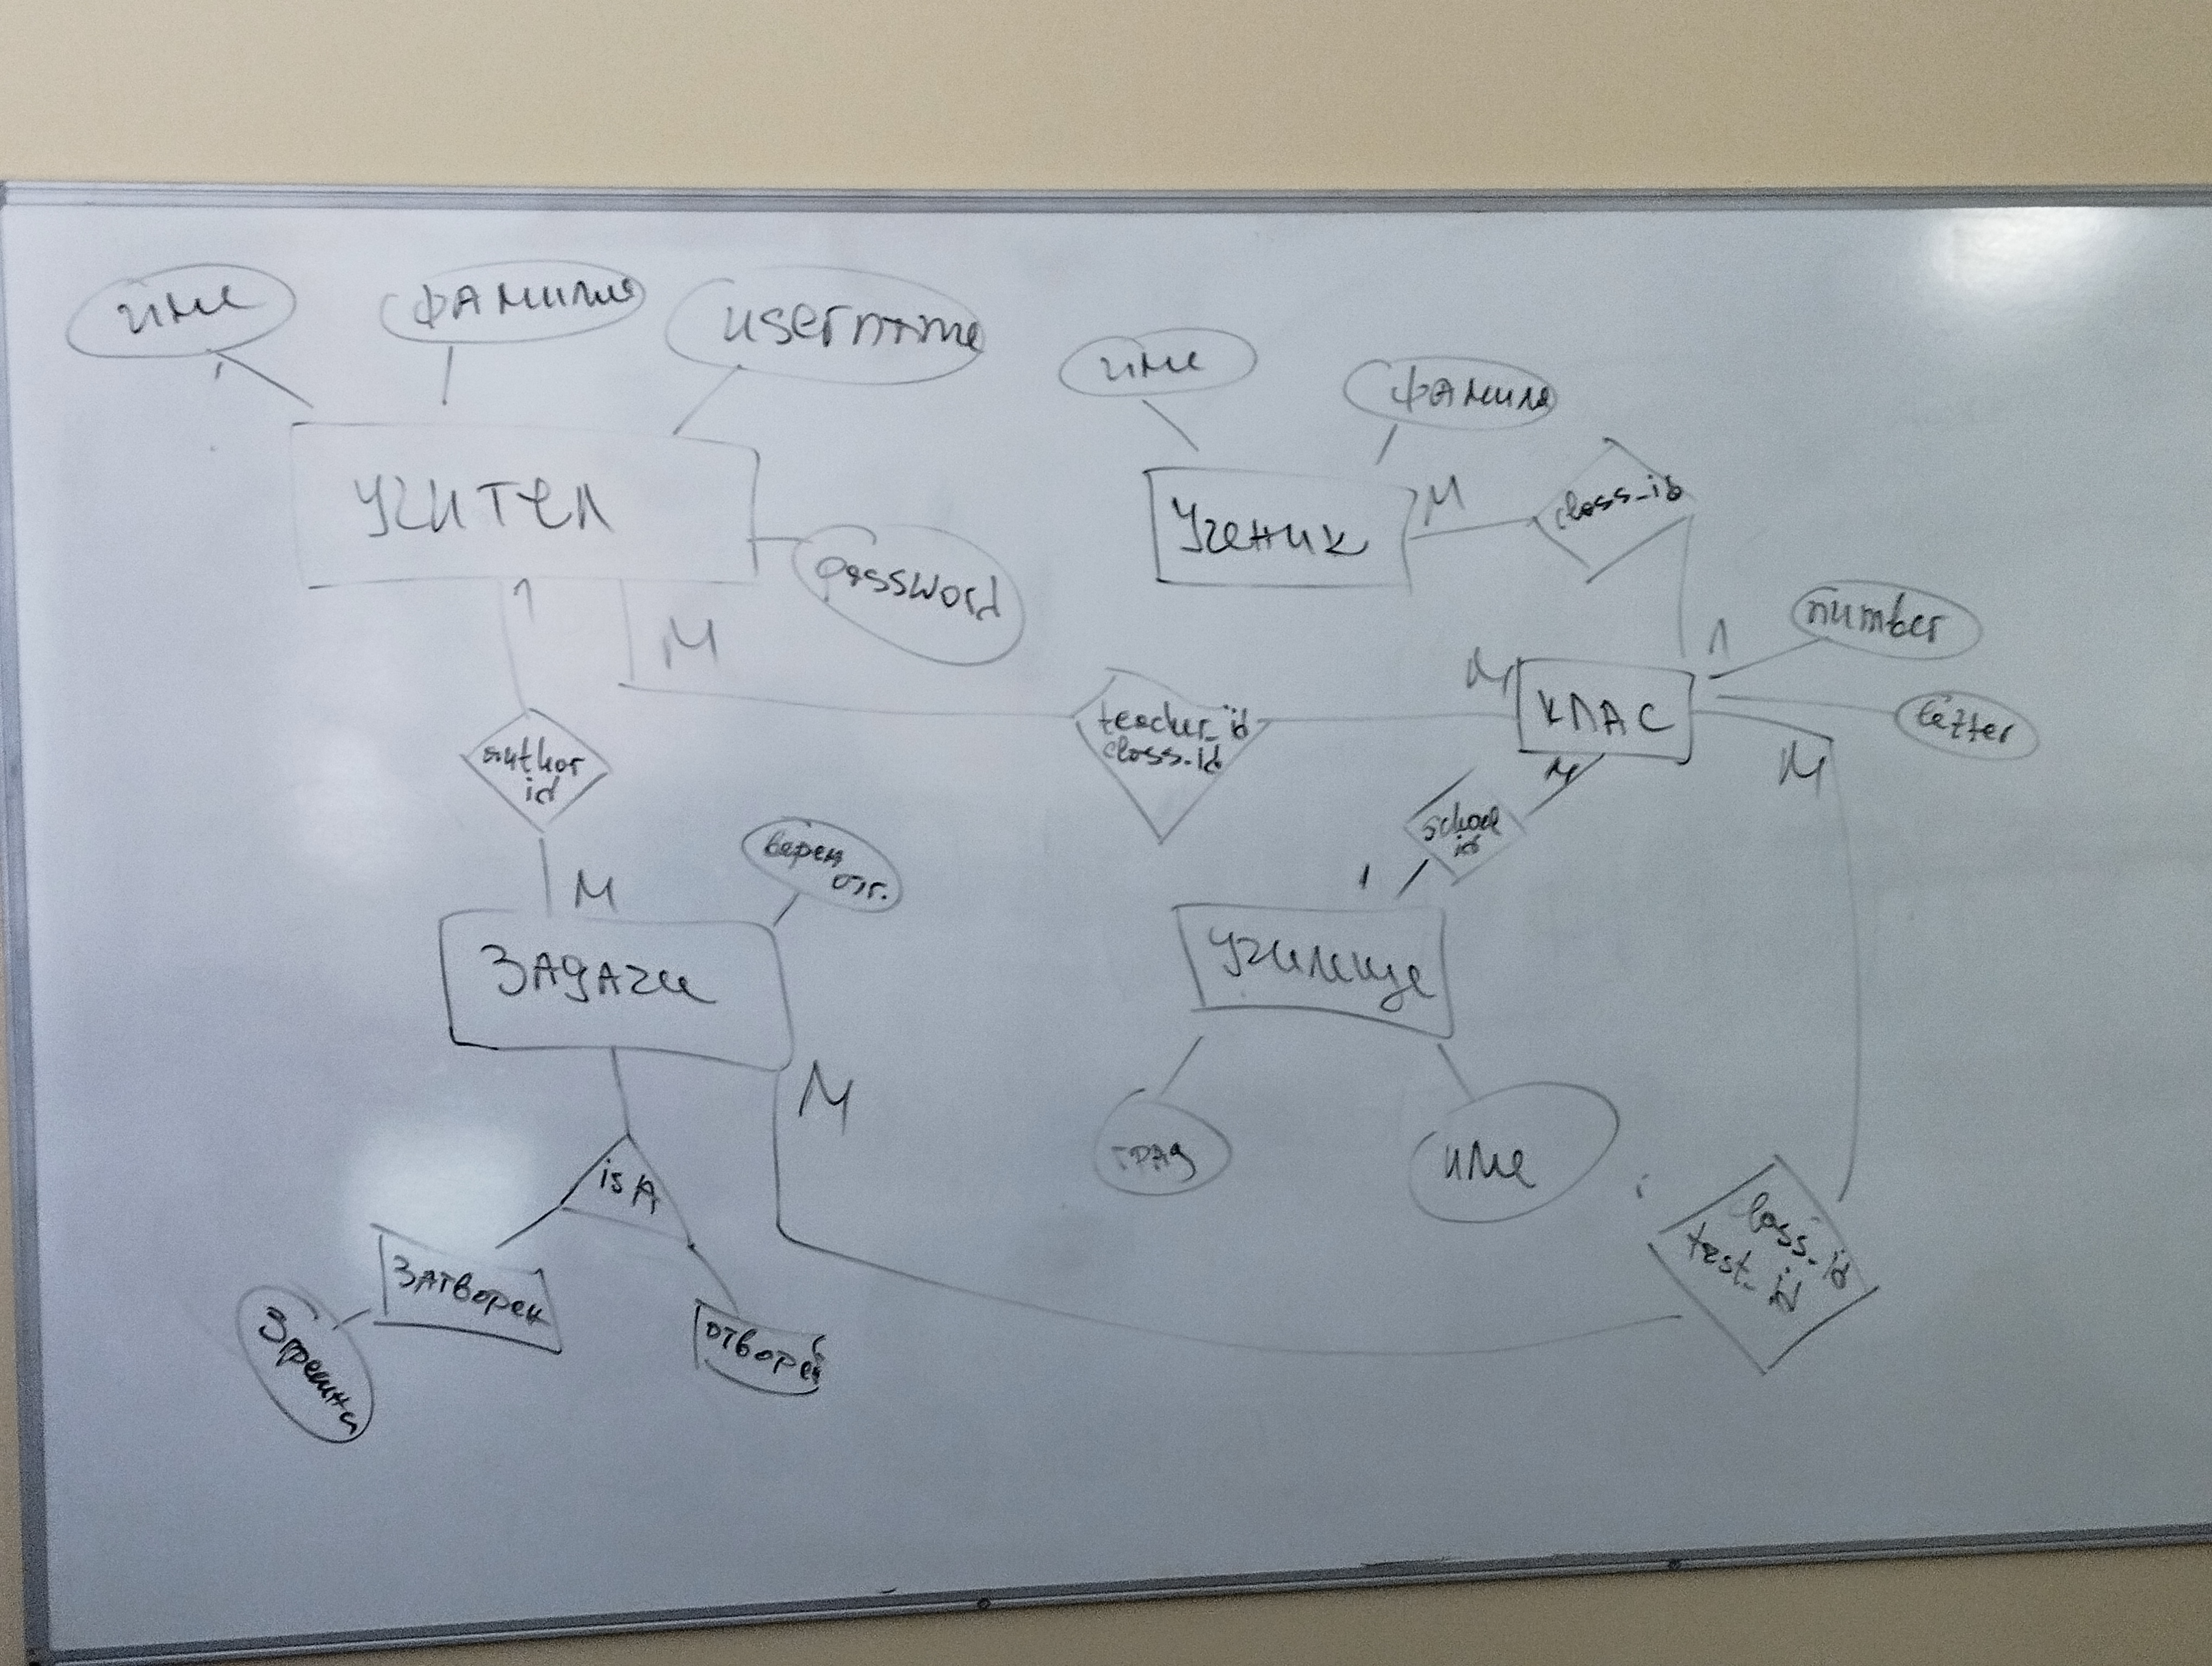 име
фамилия
username
име
фамиля
УЧИТЕЛ
Ученик
M
class_id
password
1
M
number
1
M
КЛАС
letter
teacher_id
class_id
author
id
M
M
school
id
верен
отг.
1
M
ЗАДАЧИ
Училище
M
град
име
is A
class_id
test_id
ЗАТВОРЕН
отворен